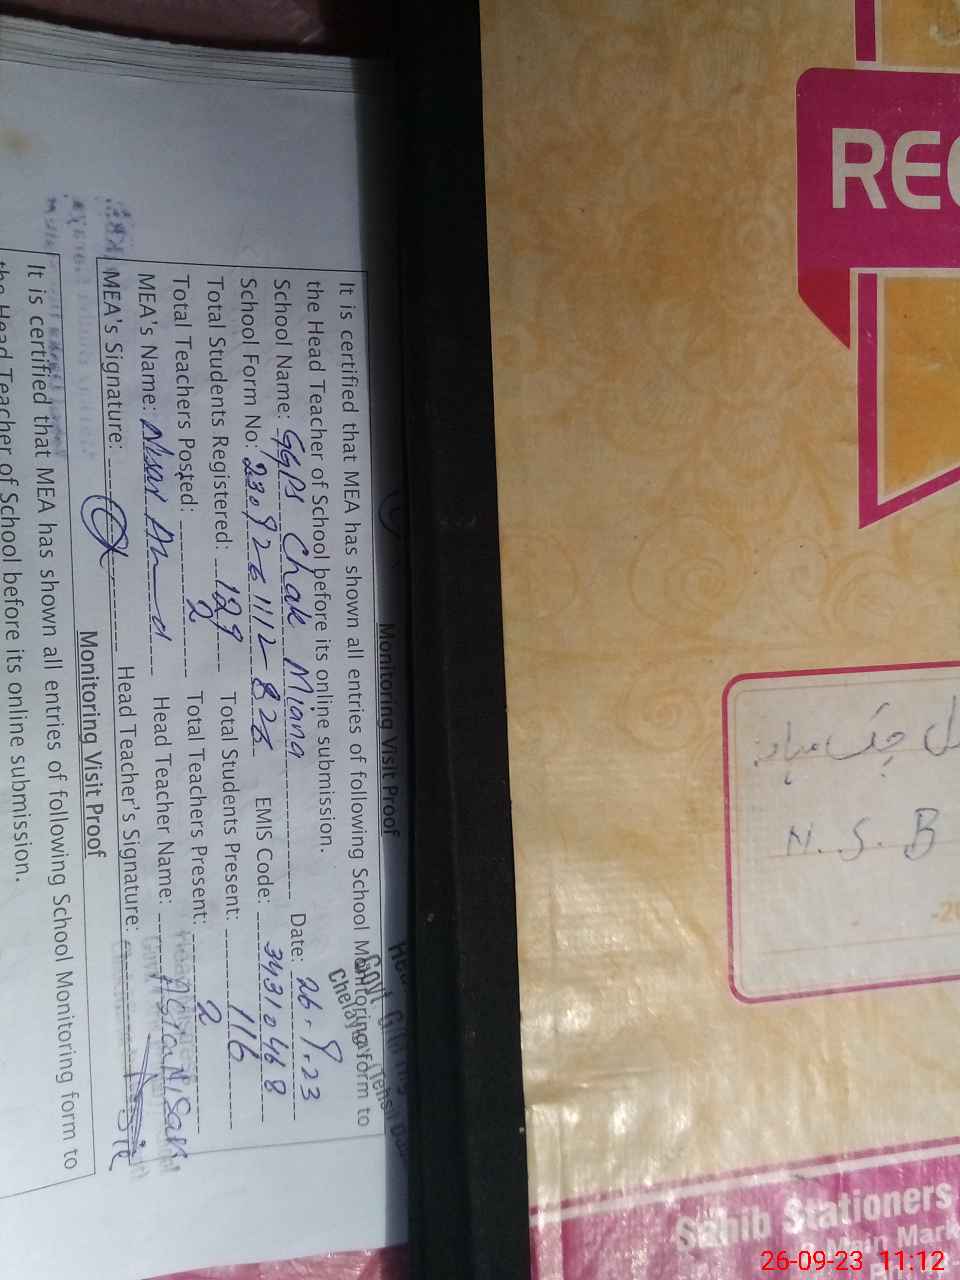 Monitoring Visit Proof
It is certified that MEA has shown all entries of following School Monitoring form to
the Head Teacher of School before its online submission.
School Name: GGPS Chak Miana Date: 26.9.23
School Form No: 2309261112-826 EMIS Code: 34310468
Total Students Registered: 129 Total Students Present: 116
Total Teachers Posted: 2 Total Teachers Present: 2
MEA's Name: Head Teacher Name:
MEA's Signature: Head Teacher's Signature:
Monitoring Visit Proof
It is certified that MEA has shown all entries of following School Monitoring form to
the Head Teacher of School before its online submission.
REG
چک میانہ
N.S.B
-20
Sahib Stationers
Main Mark
26-09-23 11:12